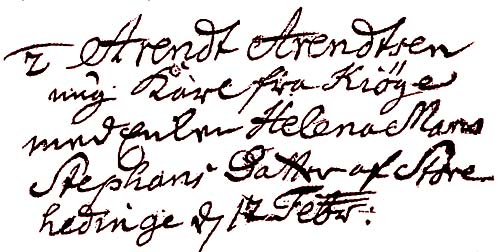 2 Arendt Arendtsen
ung Karl fra Kiöge
med Enken Helena Maria
Stephans Datter af Store
hedinge d 17 Febr: